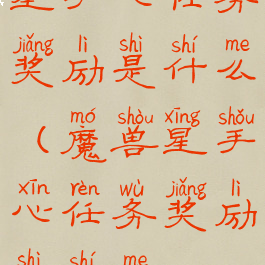 任务
jiǎng lì shì shí me
奖励是什么
mó shòu xīng shǒu
（魔兽星手
xīn rèn wù jiǎng lì
心任务奖励
shì shí me